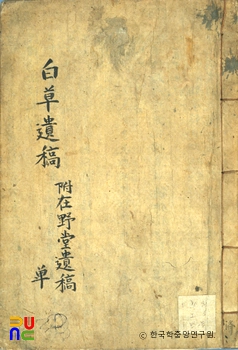 白草遺稿
附在野堂遺稿
單
© 한국학중앙연구원